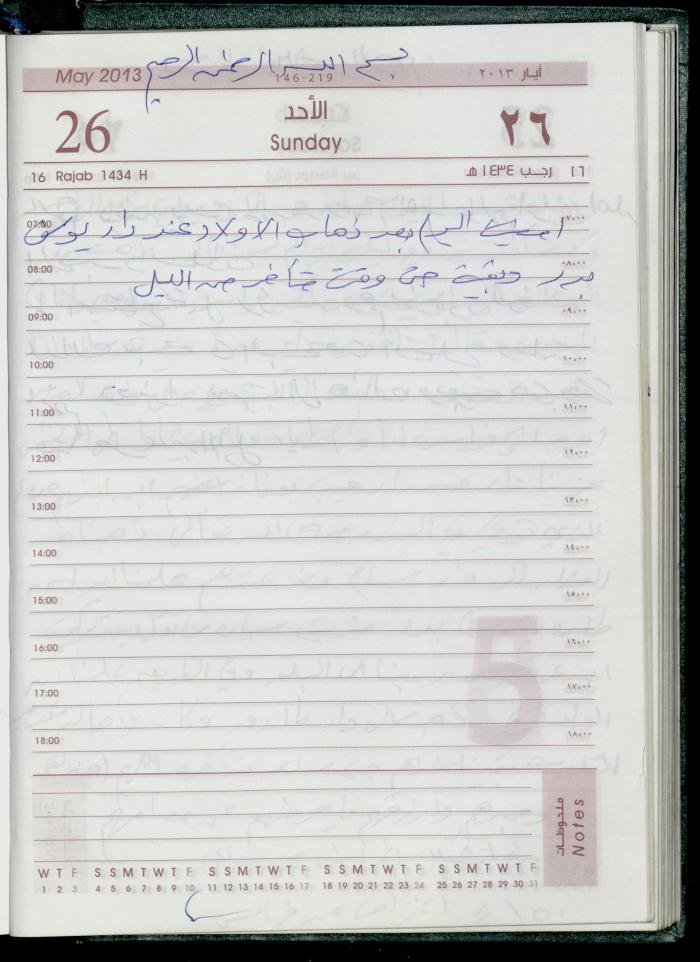 بسم الله الرحمن الرحيم
May 2013 146-219 أيار ٢٠١٣
26 الأحد ٢٦
Sunday
16 Rajab 1434 H ١٦ رجب ١٤٣٤ هـ
07:00 ٧,٠٠
بعد ذهاب الاولاد عند دار يوسف
08:00 ٨,٠٠
بدر وبقيت حتى وقت متأخر من الليل
09:00 ٩,٠٠
10:00 ١٠,٠٠
11:00 ١١,٠٠
12:00 ١٢,٠٠
13:00 ١٣,٠٠
14:00 ١٤,٠٠
15:00 ١٥,٠٠
16:00 ١٦,٠٠
17:00 ١٧,٠٠
18:00 ١٨,٠٠
5
ملحوظات
Notes
W T F S S M T W T F S S M T W T F S S M T W T F S S M T W T F
1 2 3 4 5 6 7 8 9 10 11 12 13 14 15 16 17 18 19 20 21 22 23 24 25 26 27 28 29 30 31